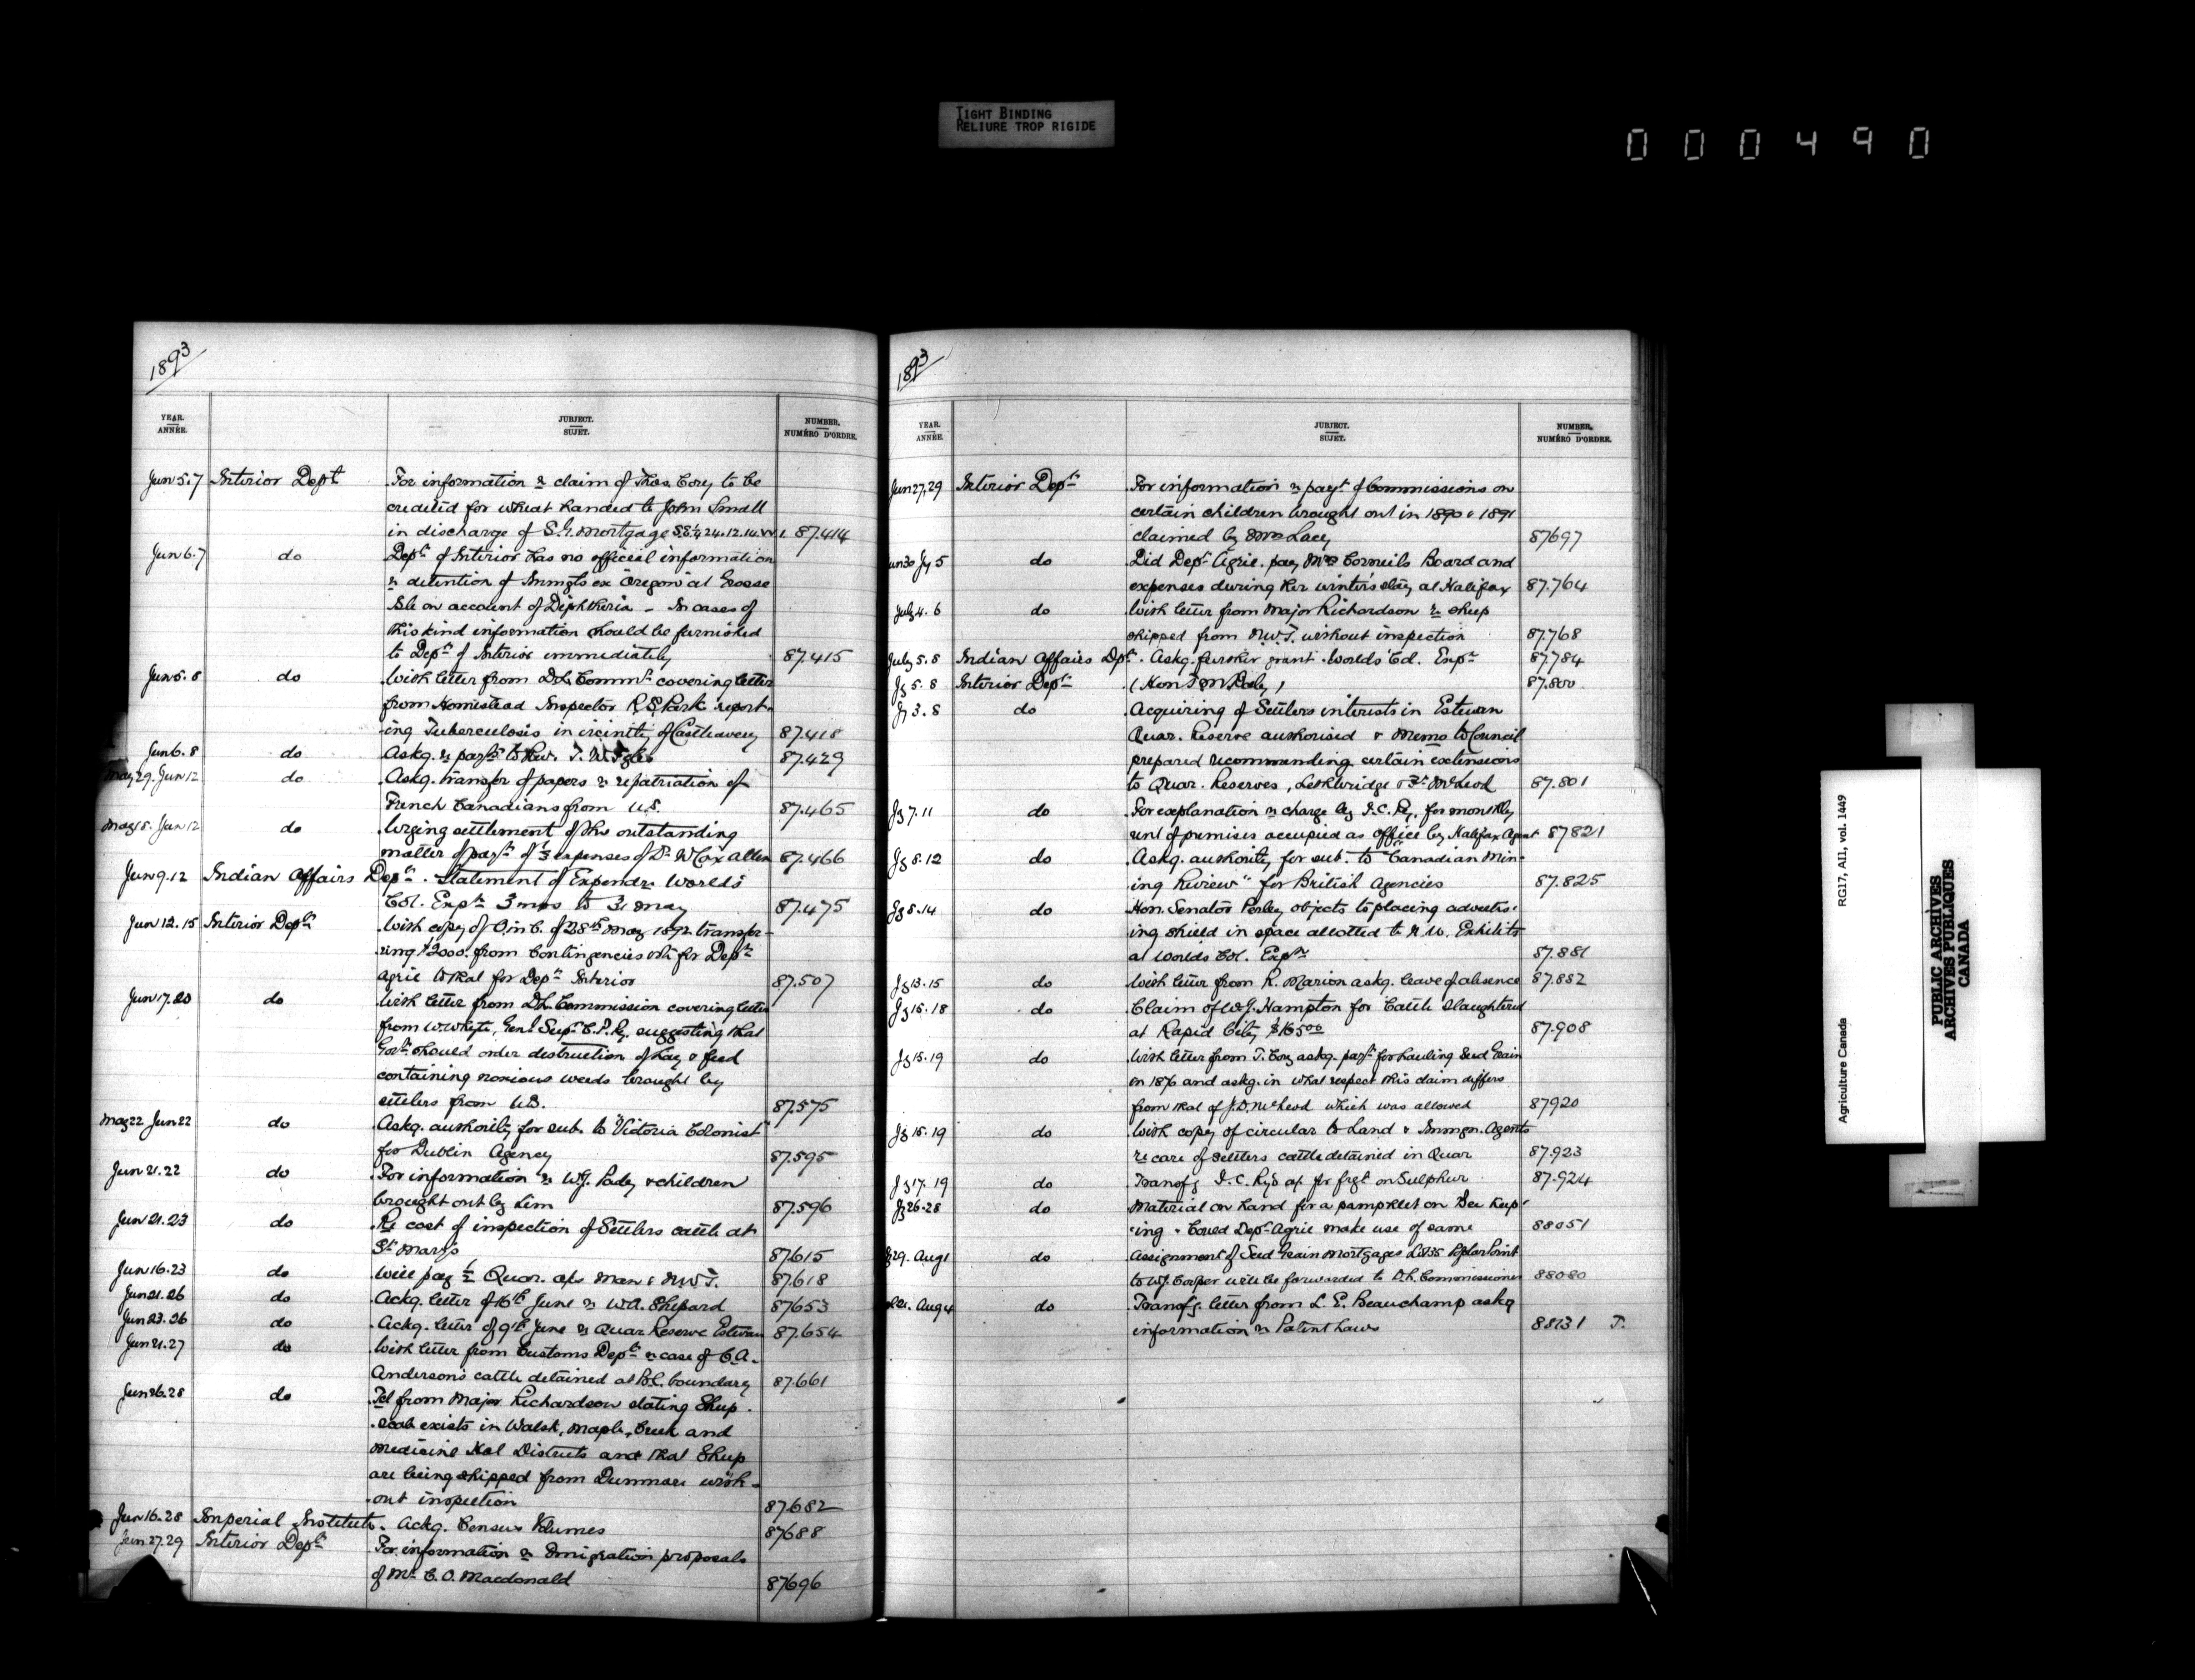 TIGHT BINDING
RELIURE TROP RIGIDE
000490
1893
YEAR. ANNÉE.
JUBJECT. SUJET.
NUMBER. NUMÉRO D'ORDRE.
Jun 5.7 Interior Dept For information re claim of Thos. Cory to be
credited for wheat handed to John Small
in discharge of S.G. Mortgage S.E.¼ 24.12.14.W.1. 87.414
Jun 6.7 do Dept of Interior has no official information
re detention of Immgts ex "Oregon" at Grosse
Isle on account of Diphtheria - In cases of
this kind information should be furnished
to Dept of Interior immediately 87.415
Jun 5.8 do With letter from D.L. Commr covering letter
from Homestead Inspector R.S. Park report-
ing Tuberculosis in vicinity of 87.418
Jun 6.8 do Askg. re paymt to Rev. T. W. 87.429
May 29. Jun 12 do Askg. transfer of papers re repatriation of
French Canadians from U.S. 87.465
May 18. Jun 12 do Urging settlement of the outstanding
matter of paymt of ⅓ expenses of Dr W Cox Allen 87.466
Jun 9.12 Indian Affairs Dept. Statement of Expendre Worlds
Col. Expn 3 mos to 31 May 87.475
Jun 12.15 Interior Dept With copy of O. in C. of 28th May 1892 transfer-
ring $2000. from Contingencies vote for Dept
Agric to that for Dept Interior 87.507
Jun 17.20 do With letter from D.L. Commission covering letter
from W. Whyte, Genl Supt C.P. Ry. suggesting that
Govt should order destruction of hay & feed
containing noxious weeds brought by
settlers from U.S. 87.575
May 22 Jun 22 do Askg. authority for sub. to "Victoria Colonist"
for Dublin Agency 87.595
Jun 21.22 do For information re W.J. Pady & children
brought out by him 87.596
Jun 21.23 do Re cost of inspection of Settlers cattle at
St Marys 87615
Jun 16.23 do Will pay ½ Quar. a/cs Man & N.W.T. 87.618
Jun 21.26 do Ackg. letter of 16th June re W.A. Shepard 87653
Jun 23.26 do Ackg. letter of 9th June re Quar Reserve Estevan 87.654
Jun 21.27 do With letter from Customs Dept re case of C.A.
Anderson's cattle detained at B.C. boundary 87.661
Jun 26.28 do Tel from Major Richardson stating Sheep
scab exists in Walsh, Maple Creek and
Medicine Hat Districts and that Sheep
are being shipped from Dunmore with-
out inspection 87.682
Jun 16.28 Imperial Institute. Ackg. Census Volumes 87688
Jun 27.29 Interior Dept For information re Immigration proposals
of Mr C.O. Macdonald 87696
1893
YEAR. ANNÉE.
JUBJECT. SUJET.
NUMBER. NUMÉRO D'ORDRE.
Jun 27,29 Interior Dept For information re paymt of Commissions on
certain children brought out in 1890 & 1891
claimed by Mrs Lacey 87697
Jun 30 Jy 5 do Did Dept Agric. pay Mrs Corneils Board and
expenses during her winter's stay at Halifax 87.764
July 4.6 do With letter from Major Richardson re sheep
shipped from N.W.T. without inspection 87.768
July 5.8 Indian Affairs Dpt. Askg. further grant. Worlds Col. Expn 87.784
Jy 5.8 Interior Dept (Hon T M Daly) 87.800
Jy 3.8 do Acquiring of Settlers interests in Estevan
Quar. Reserve authorised & Memo to Council
prepared recommending certain extensions
to Quar. Reserves, Lethbridge & Ft McLeod 87.801
Jy 7.11 do For explanation re charge by I.C. Ry. for monthly
rent of premises occupied as office by Halifax Agent 87821
Jy 8.12 do Askg. authority for sub. to "Canadian Min-
ing Review" for British Agencies 87.825
Jy 8.14 do Hon. Senator Perley objects to placing advertis-
ing shield in space allotted to N.W. Exhibits
at Worlds Col. Expn 87.881
Jy 13.15 do With letter from R. Marion askg. leave of absence 87.882
Jy 15.18 do Claim of W.J. Hampton for Cattle slaughtered
at Rapid City $165.00 87.908
Jy 15.19 do With letter from T. Cory askg. paymt for hauling Seed Grain
in 1876 and askg. in what respect this claim differs
from that of J.D. McLeod which was allowed 87920
Jy 15.19 do With copy of circular to Land & Immgn. Agents
re care of settlers cattle detained in Quar 87.923
Jy 17.19 do Transfg I.C. Ry's a/c for frgt on Sulphur 87.924
Jy 26.28 do Material on hand for a pamphlet on Bee Keep-
ing. Could Dept Agric make use of same 88051
Jy 29. Aug 1 do Assignment of Seed Grain Mortgages Lot 35 Poplar Point
to W.J. Cooper will be forwarded to D.L. Commissioner 88080
Aug 4 do Transfg. letter from L. E. Beauchamp askg
information re Patent Laws 88131 T.
Agriculture Canada RG17, AII, vol. 1449
PUBLIC ARCHIVES
ARCHIVES PUBLIQUES
CANADA